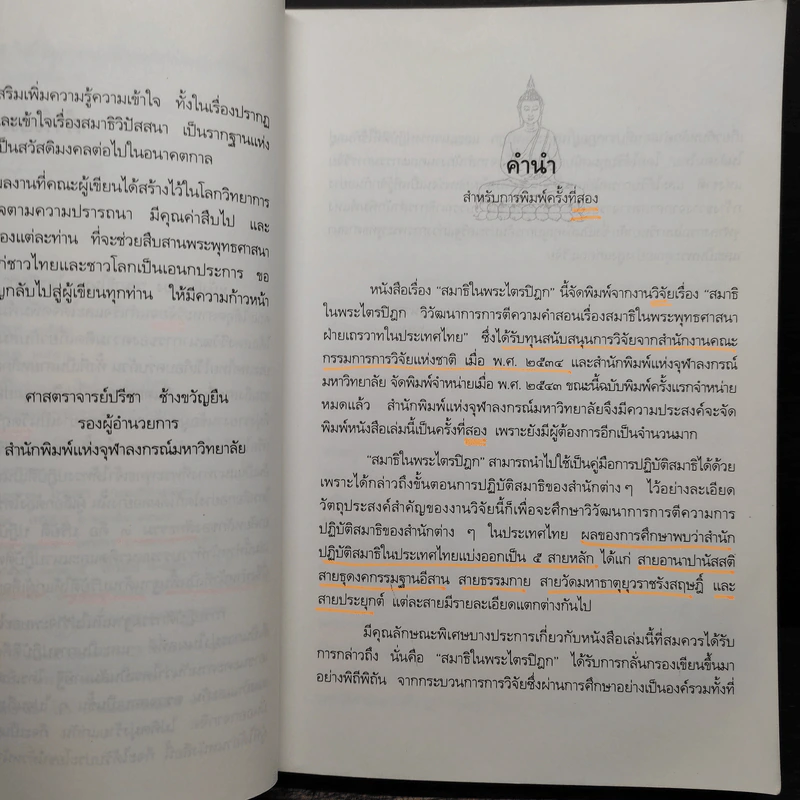 สริมเพิ่มความรู้ความเข้าใจ ทั้งในเรื่องปรากฏ
ละเข้าใจเรื่องสมาธิวิปัสสนา เป็นรากฐานแห่ง
ป็นสวัสดิมงคลต่อไปในอนาคตกาล
ลงานที่คณะผู้เขียนได้สร้างไว้ในโลกวิทยาการ
จตามความปรารถนา มีคุณค่าสืบไป และ
องแต่ละท่าน ที่จะช่วยสืบสานพระพุทธศาสนา
ก่ชาวไทยและชาวโลกเป็นเอนกประการ ขอ
ญกลับไปสู่ผู้เขียนทุกท่าน ให้มีความก้าวหน้า
ศาสตราจารย์ปรีชา ช้างขวัญยืน
รองผู้อำนวยการ
สำนักพิมพ์แห่งจุฬาลงกรณ์มหาวิทยาลัย
คำนำ
สำหรับการพิมพ์ครั้งที่สอง
หนังสือเรื่อง "สมาธิในพระไตรปิฎก" นี้จัดพิมพ์จากงานวิจัยเรื่อง "สมาธิ
ในพระไตรปิฎก วิวัฒนาการการตีความคำสอนเรื่องสมาธิในพระพุทธศาสนา
ฝ่ายเถรวาทในประเทศไทย" ซึ่งได้รับทุนสนับสนุนการวิจัยจากสำนักงานคณะ
กรรมการการวิจัยแห่งชาติ เมื่อ พ.ศ. ๒๕๓๔ และสำนักพิมพ์แห่งจุฬาลงกรณ์
มหาวิทยาลัย จัดพิมพ์จำหน่ายเมื่อ พ.ศ. ๒๕๔๓ ขณะนี้ฉบับพิมพ์ครั้งแรกจำหน่าย
หมดแล้ว สำนักพิมพ์แห่งจุฬาลงกรณ์มหาวิทยาลัยจึงมีความประสงค์จะจัด
พิมพ์หนังสือเล่มนี้เป็นครั้งที่สอง เพราะยังมีผู้ต้องการอีกเป็นจำนวนมาก
"สมาธิในพระไตรปิฎก" สามารถนำไปใช้เป็นคู่มือการปฏิบัติสมาธิได้ด้วย
เพราะได้กล่าวถึงขั้นตอนการปฏิบัติสมาธิของสำนักต่าง ๆ ไว้อย่างละเอียด
วัตถุประสงค์สำคัญของงานวิจัยนี้ก็เพื่อจะศึกษาวิวัฒนาการการตีความการ
ปฏิบัติสมาธิของสำนักต่าง ๆ ในประเทศไทย ผลของการศึกษาพบว่าสำนัก
ปฏิบัติสมาธิในประเทศไทยแบ่งออกเป็น ๕ สายหลัก ได้แก่ สายอานาปานัสสติ
สายธุดงคกรรมฐานอีสาน สายธรรมกาย สายวัดมหาธาตุยุวราชรังสฤษฎิ์ และ
สายประยุกต์ แต่ละสายมีรายละเอียดแตกต่างกันไป
มีคุณลักษณะพิเศษบางประการเกี่ยวกับหนังสือเล่มนี้ที่สมควรได้รับ
การกล่าวถึง นั่นคือ "สมาธิในพระไตรปิฎก" ได้รับการกลั่นกรองเขียนขึ้นมา
อย่างพิถีพิถัน จากกระบวนการการวิจัยซึ่งผ่านการศึกษาอย่างเป็นองค์รวมทั้งที่